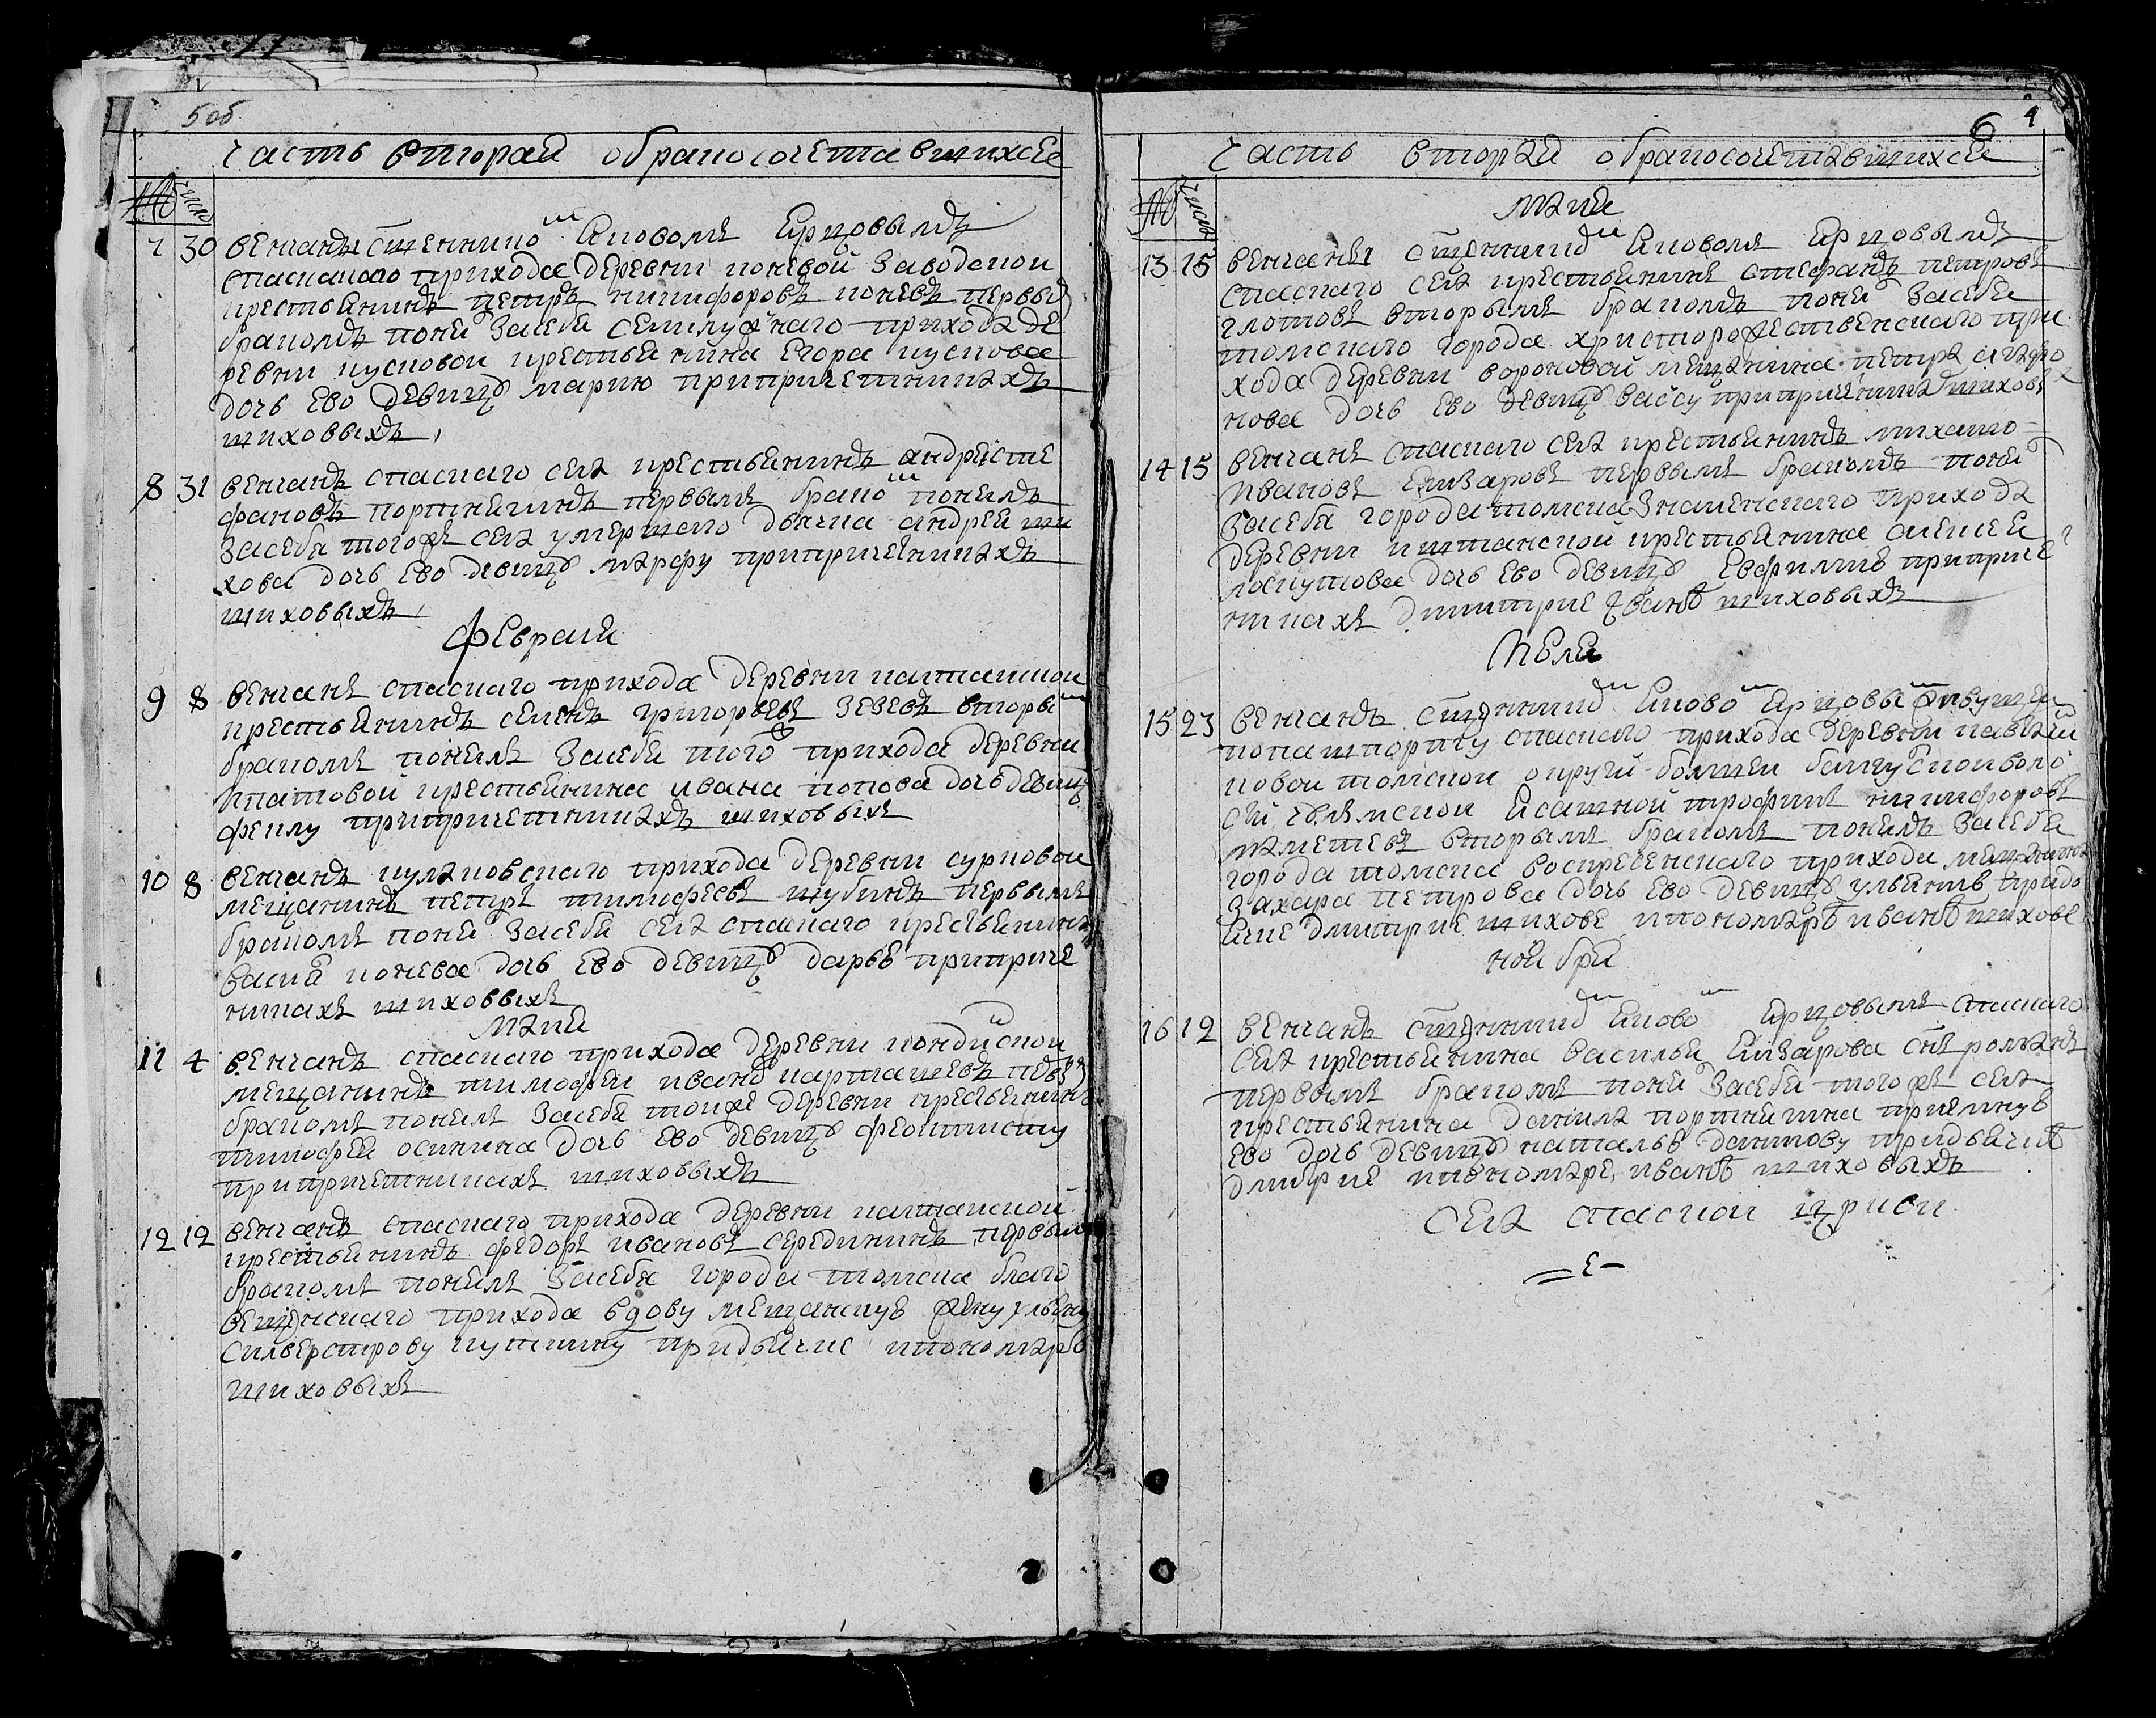 5 об
часть вторая о бракосочетавшихсе
№ число
7 30 венчанъ священнико^м Яковомъ Ярцовымъ
спаскаго прихода деревни коневой заводской
крестьянинъ петръ никифоровъ коневъ первы^м
бракомъ поня^л засебя семилужнаго прихода де
ревни кусковой крестьянина Егора кускова
дочь ево девицу марию припричетникахъ
шиховыхъ,
8 31 венчанъ спаскаго села крестьянинъ андрей сте
фановъ портнягинъ первымъ брако^м понялъ
засебя тогожъ села умершаго дьячка андрея ши
хова дочь ево девицу марфу припричетникахъ
шиховыхъ,
Февраля
9 8 венчанъ спаскаго прихода деревни каштакской
крестьянинъ семенъ григорьевъ зевевъ вторы^м
бракомъ понялъ засебя того^ж прихода деревни
ипатовой крестьянина ивана попова дочь девицу
феклу припричетникахъ шиховыхъ
10 8 венчанъ кулаковскаго прихода деревни сурковой
мещанинъ петръ тимофеевъ шубинъ первымъ
бракомъ поня^л засебя села спаскаго крестьянина
васил^я конева дочь ево девицу дарью припричет
никахъ шиховыхъ
маия
11 4 венчанъ спаскаго прихода деревни кондинской
мещанинъ тимофей ивано^в карташевъ первы^м
бракомъ понялъ засебя тойже деревни крестьянина
тимофея осипина дочь ево девицу феоктисту
припричетникахъ шиховыхъ
12 12 венчанъ спаскаго прихода деревни каштакской
крестьянинъ федоръ ивановъ серединин первым
бракомъ понялъ засебя города томска благо
вещенскаго прихода вдову мещанскую жену ульяну
силверстрову куткину придьячке ипономаре
шиховыхъ
6 4
часть вторая о бракосочетавшихся
№ число
маия
13 15 венчаны священнико^м Яковомъ Ярцовымъ
спаскаго села крестьянинъ стефанъ петровъ
глотовъ вторымъ бракомъ поня^л засебя
томскаго города христорожественскаго при
хода деревни вороновой мещанина петра агафо
нова дочь ево девицу вассу припричетника^х шиховы^х
14 15 венчанъ спаскаго села крестьянинъ михайло
ивановъ Елизаровъ первымъ бракомъ поня^л
засебя города томска знаменскаго прихода
деревни киштанской крестьянина алексея
лоскутова дочь ево девицу Евфимию припричет
никахъ дмитрие иване шиховыхъ
июля
15 23 венчанъ священнико^м Яково^м Ярцовы^м живущей
попашпорту спаскаго прихода деревни
новой томской округи
ясашной трофимъ никифоровъ
маметевъ вторымъ бракомъ понялъ засебя
города томска воскресенскаго прихода мещанина
захара петрова дочь ево девицу ульяну придья
чке дмитрие шихове ипономаре иване шихове
ноября
16 12 венчанъ священнико^м Яково^м Ярцовымъ спаскаго
села крестьянина василья Елизарова сынъ романъ
первымъ бракомъ поня^л засебя тогожъ села
крестьянина данила портнягина приемную
ево дочь девицу наталью данилову придьячке
дмитрие ипономаре, иване шиховыхъ
села спаской церкви